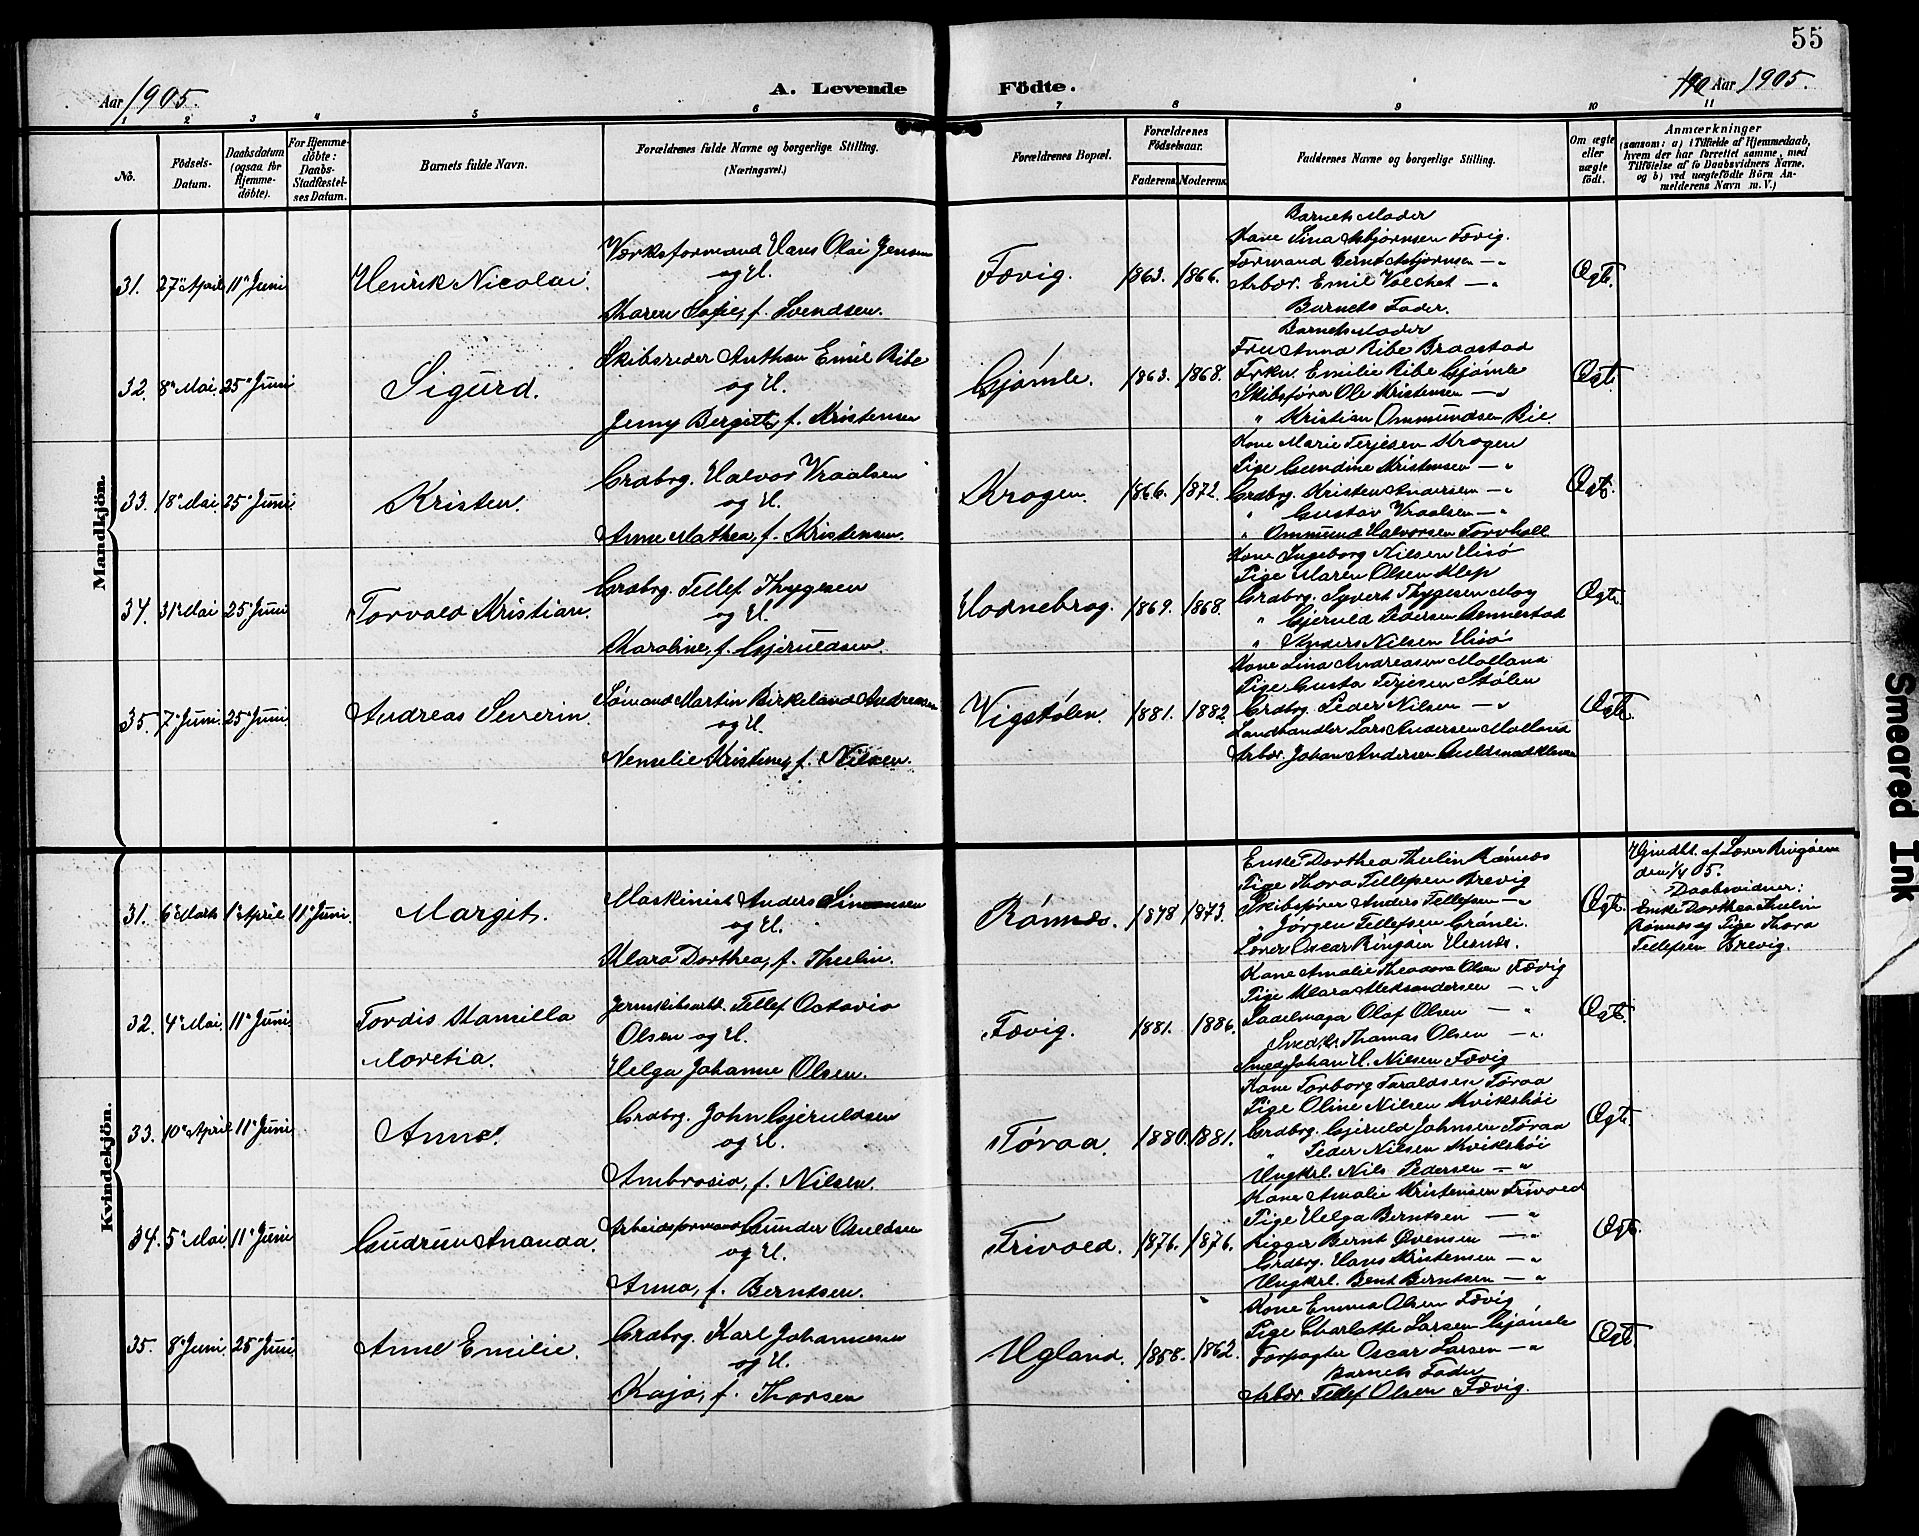 55
Aar 1905.
A. Levende Födte.
110 Aar 1905.
1 2 3 4 5 6 7 8 9 10 11
No.
Födsels-Datum.
Daabsdatum (ogsaa for Hjemme-döbte).
For Hjemme-döbte: Daabs-Stadfæstel-ses Datum.
Barnets fulde Navn.
Forældrenes fulde Navne og borgerlige Stilling.
(Næringsvei.)
Forældrenes Bopæl.
Forældrenes Födselsaar.
Faderens.
Moderens.
Faddernes Navne og borgerlige Stilling.
Om ægte eller uægte födt.
Anmærkninger
(saasom: a) i Tilfælde af Hjemmedaab,
hvem der har forrettet samme, med
Tilföielse af to Daabsvidners Navne.
og b) ved uægtefödte Börn An-
melderens Navn m. V.)
Mandkjön.
31. 27de April 11te Juni
Henrik Nicolai.
Værksformand Hans Olai Jensen
og H.
Karen Sofie, f. Svendsen.
Fævig. 1863. 1866.
Barnets Moder
Kone Lina Asbjørnsen Fævig.
Formand Bernt Asbjørnsen — "
Arbdr. Emil Vochet — "
Barnets Fader.
Ægte.
32. 8de Mai 25de Juni
Sigurd.
Skibsreder Anthon Emil Ribe
og H.
Jenny Bergitte, f. Kristensen
Gjømle. 1863. 1868.
Barnets Moder
Fru Anna Ribe Braastad
Frkn. Emilie Ribe Gjømle
Skibsfører Ole Kristensen — "
" Kristian Ommundsen Bie.
Ægte.
33. 18de Mai 25de Juni
Kristen.
Grdbrg. Halvor Vraalsen
og H.
Anne Mathea, f. Kristensen.
Krogen. 1866. 1872.
Kone Marie Terjesen Krogen
Pige Gundine Kristensen — "
Grdbrg. Kristen Andersen — "
" Gustav Vraalsen — "
" Ommund Halvorsen
Ægte.
34. 31te Mai 25de Juni
Torvald Kristian.
Grdbrg. Tellef Thygesen
og H.
Karoline, f. Gjeruldsen.
Hodnebrog. 1869. 1868.
Kone Ingeborg Nilsen Hisø
Pige Maren Olsen Klep
Grdbrg. Syvert Thygesen Moy
" Gjeruld Pedersen
" Anders Nilsen Hisø
Ægte
35. 7de Juni 25de Juni
Andreas Severin.
Sømand Martin Birkeland Andreasen
og H.
Nemelie Kristine, f. Nilsen.
Vigstølen. 1881. 1882.
Kone Lina Andreasen Molland
Pige Gusta Terjesen Stølen
Grdbrg. Peder Nilsen — "
Landhandler Lars Andersen Molland
Arbdr. Johan Andersen
Ægte.
Kvindekjön.
31. 6te Marts 1ste April 11te Juni.
Margit.
Maskinist Anders Simonsen
og H.
Klara Dorthea, f. Thulin.
Rønnes. 1878 1873.
Enke Dorthea Thulin Rønnes
Pige Thora Tellefsen Brevig
Skibsfører Anders Tellefsen — "
" Jørgen Tellefsen Grønli.
Lærer Oscar Ringøen Hernes.
Ægte.
Hjmdbt. af Lærer Ringøen
den 1/4 05.
Daabsvidner:
Enke Dorthea Thulin
Rønnes og Pige Thora
Tellefsen Brevig.
32. 4de Mai 11te Juni
Tordis Kamilla
Moretia.
Jernskibsarbd. Tellef Octavio
Olsen og H.
Helga Johanne Olsen.
Fævig. 1881. 1886.
Kone Amalie Theodora Olsen Fævig
Pige Klara Aleksandersen — "
Sadelmager Olaf Olsen — "
Thomas Olsen — "
Smed Johan H. Nilsen Fævig
Ægte.
33. 10de April 11te Juni
Anna.
Grdbrg. John Gjeruldsen
og H.
Ambrosia, f. Nilsen.
Tøraa. 1880. 1881.
Kone Torborg Taraldsen Tøraa
Pige Oline Nilsen Kvikshøi
Grdbrg. Gjeruld Johnsen Tøraa
" Peder Nilsen Kvikshøi
Ungkrl. Nils Pedersen — "
Ægte.
34. 5te Mai 11te Juni
Gudrun Ananda.
Arbeidsformand Gunder Osuldsen
og H.
Anna, f. Berntsen.
Frivold. 1876. 1876.
Kone Amalie Kristensen Frivold
Pige Helga Berntsen — "
Rigger Bernt Evensen — "
Grdbrg. Hans Kristensen — "
Ungkrl. Bent Berntsen — "
Ægte.
35. 8de Juni 25de Juni
Anne Emilie.
Grdbrg. Karl Johannesen
og H.
Kaja, f. Thorsen
Ugland. 1858. 1862.
Kone Emma Olsen Fævig
Pige Charlotte Larsen Gjømle
Forpagter Oscar Larsen — "
Barnets Fader
Arbdr. Tellef Olsen Fævig.
Ægte
Smeared Ink